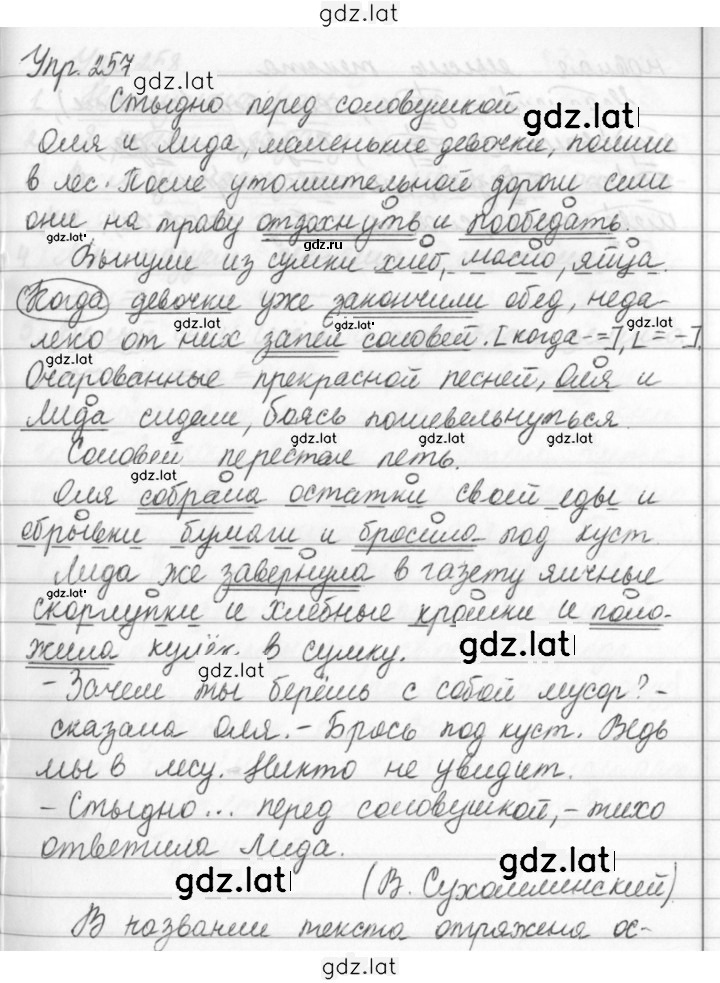 gdz.lat
Упр. 257
gdz.lat
Стыдно перед соловушкой
gdz.lat
Оля и Лида, маленькие девочки, пошли
в лес. После утомительной дороги сели
они на траву отдохнуть и пообедать.
gdz.lat gdz.ru gdz.lat
Вынули из сумки хлеб, масло, яйца.
Когда девочки уже закончили обед, неда-
gdz.lat gdz.lat gdz.lat
леко от них запел соловей. [когда - =], [= -].
Очарованные прекрасной песней, Оля и
Лида сидели, боясь пошевельнуться.
gdz.lat gdz.lat gdz.lat
Соловей перестал петь.
gdz.lat
Оля собрала остатки своей еды и
обрывки бумаги и бросила под куст.
Лида же завернула в газету яичные
скорлупки и хлебные крошки и поло-
жила кулёк в сумку.
gdz.lat gdz.lat
- Зачем ты берёшь с собой мусор? -
сказала Оля. - Брось под куст. Ведь
мы в лесу. Никто не увидит.
- Стыдно... перед соловушкой, - тихо
ответила Лида.
gdz.lat gdz.lat
(В. Сухомлинский)
В названии текста отражена ос-
gdz.lat